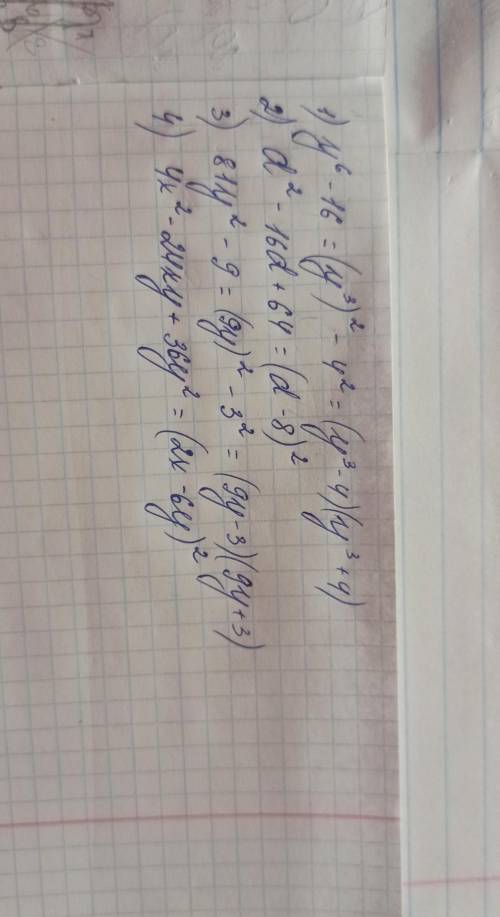 1) y⁶ - 16 = (y³)² - 4² = (y³ - 4)(y³ + 4)
2) d² - 16d + 64 = (d - 8)²
3) 81y² - 9 = (9y)² - 3² = (9y - 3)(9y + 3)
4) 4x² - 24xy + 36y² = (2x - 6y)²